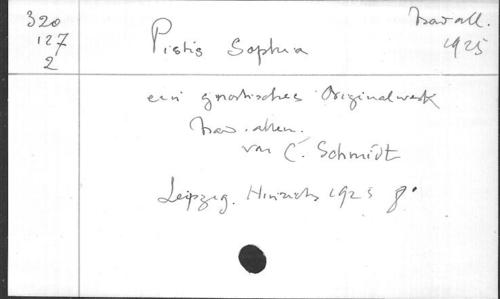 320
127
2
Pistis Sophia
1925
ein gnostisches Originalwerk
von C. Schmidt
Leipzig. Hinrichs 1925 8°